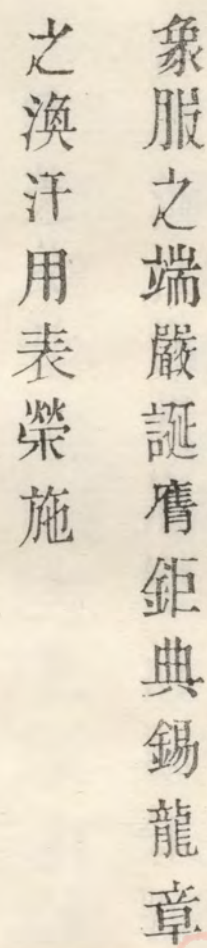 象服之端嚴誕膺鉅典錫龍章
之渙汗用表榮施